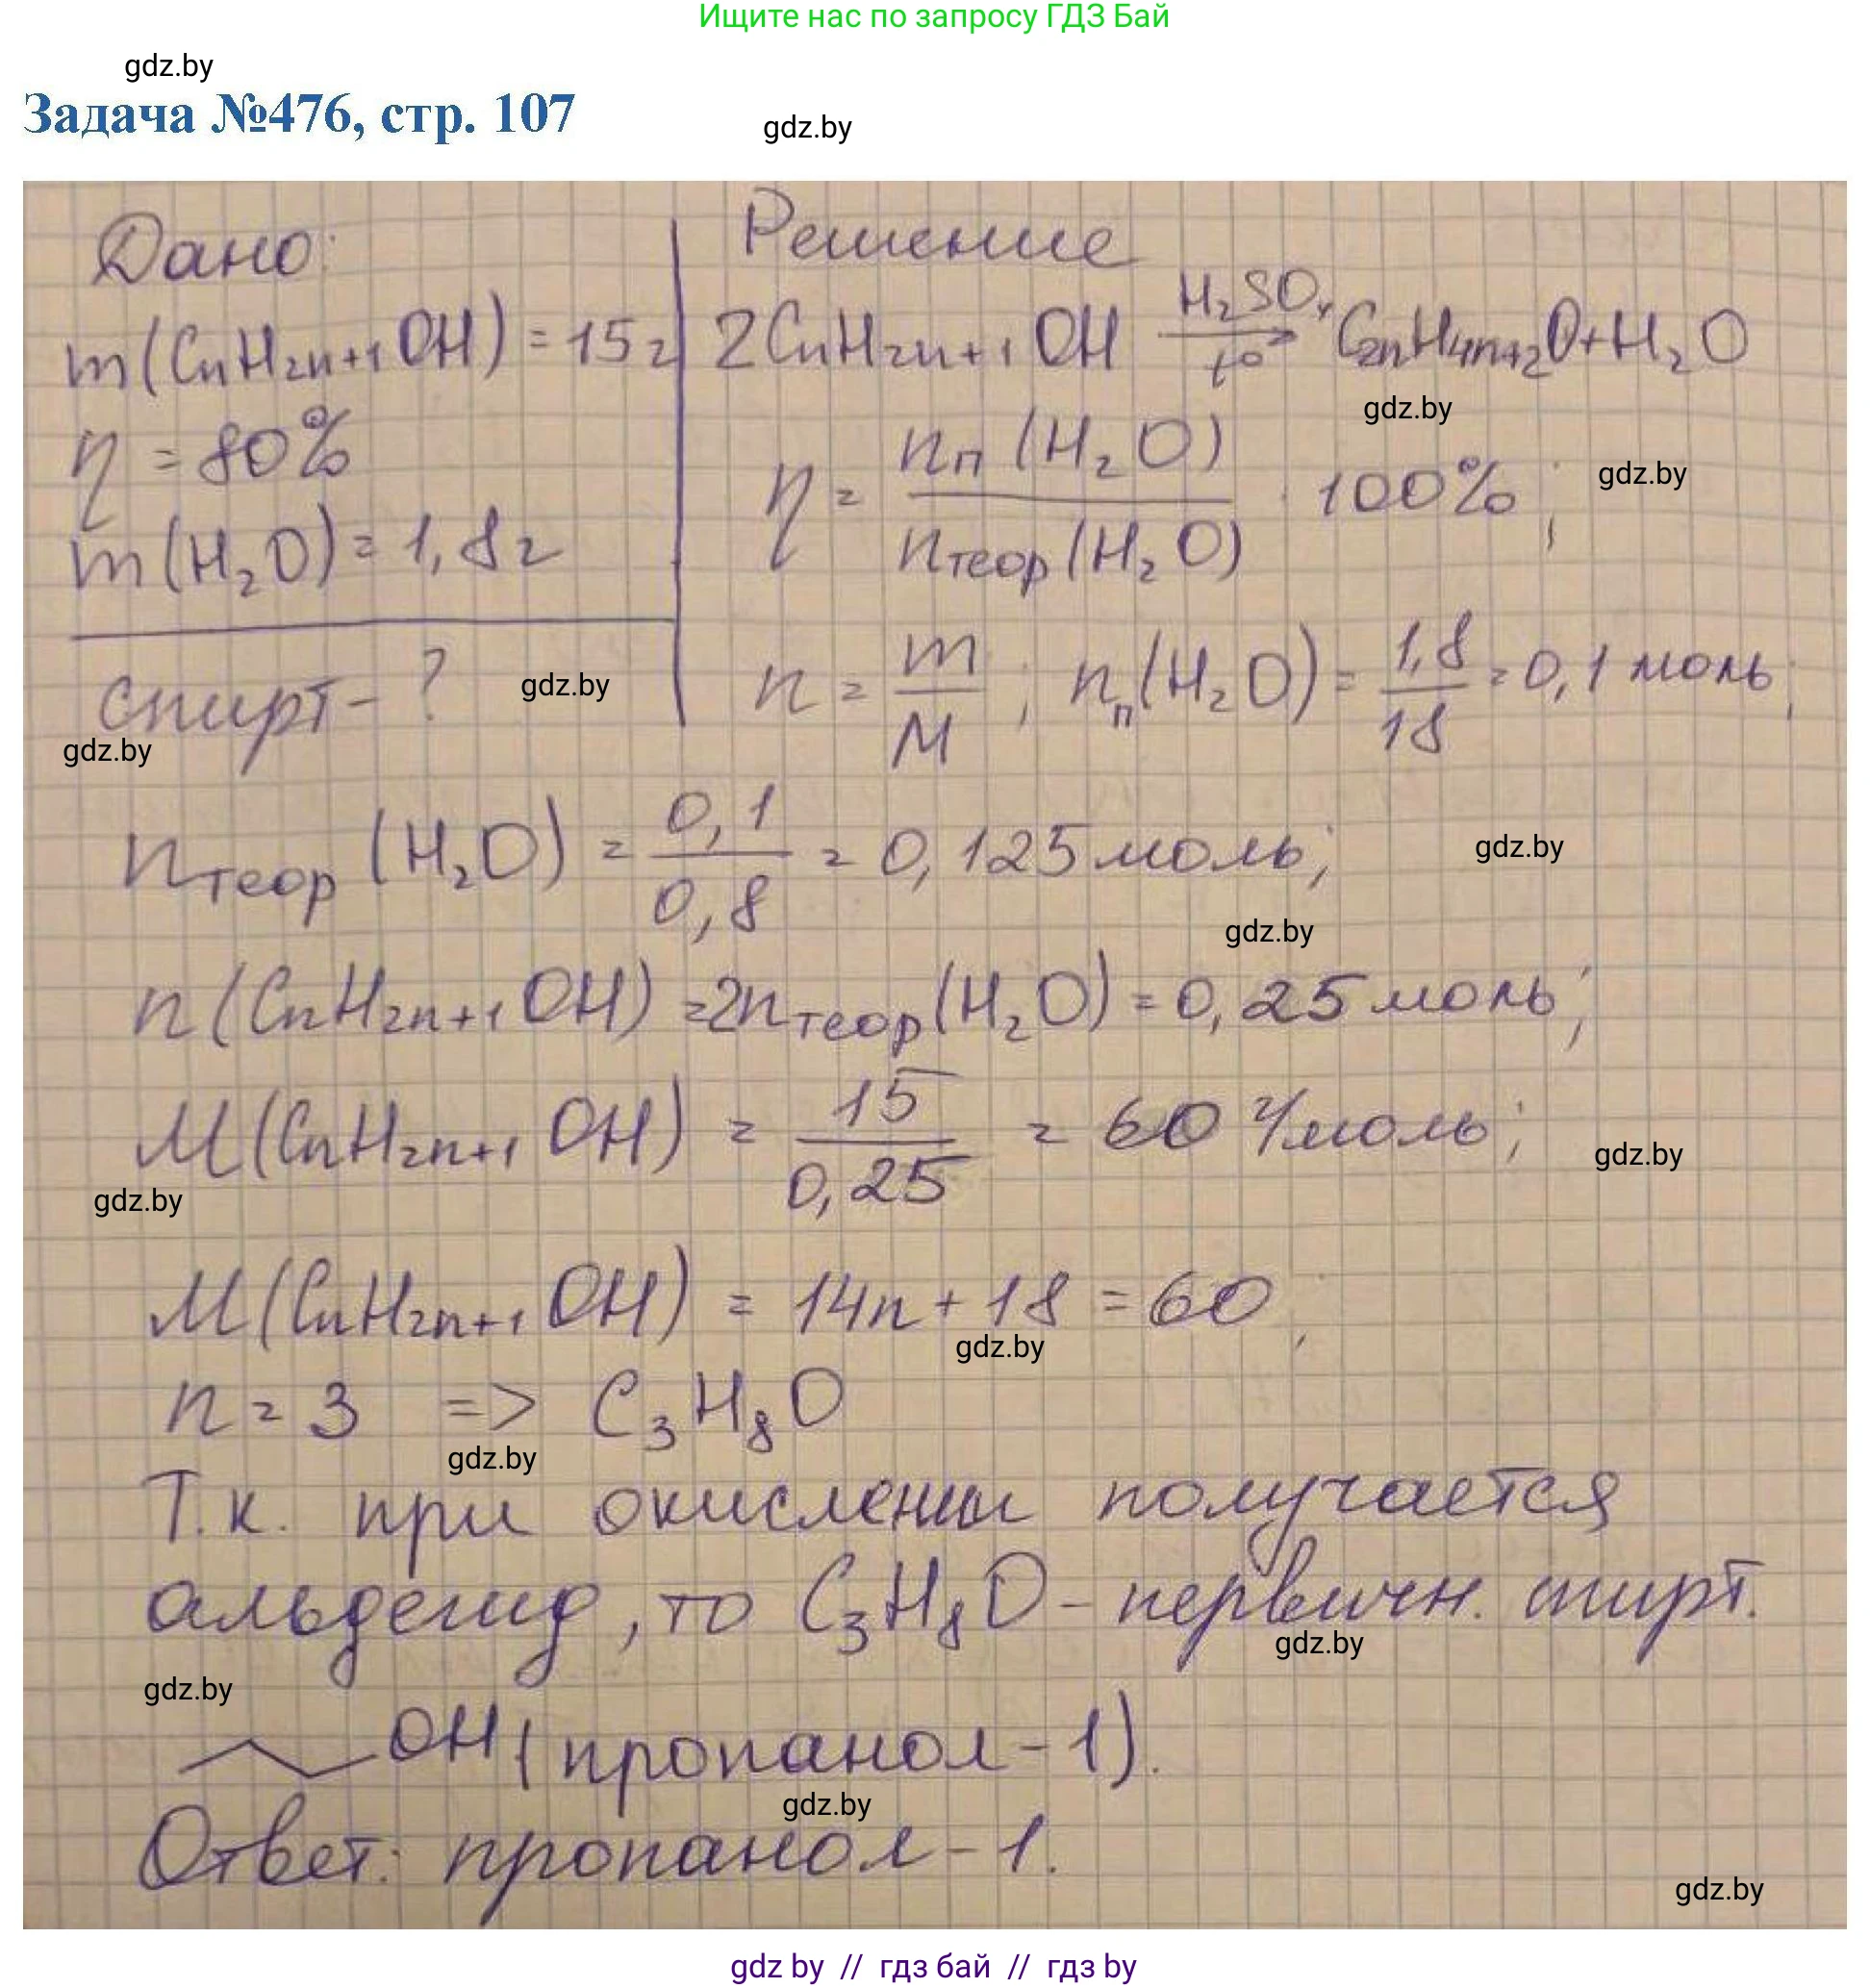 Ищите нас по запросу ГДЗ Бай
gdz.by
Задача №476, стр. 107
gdz.by
Дано:
Решение
m(CnH2n+1OH) = 15г
2CnH2n+1OH H2SO4 → t° C2nH4n+2O + H2O
gdz.by
η = 80%
η = nп(H2O) / nтеор(H2O) · 100%;
gdz.by
m(H2O) = 1,8г
спирт - ?
gdz.by
n = m/M; nп(H2O) = 1,8/18 = 0,1 моль;
gdz.by
nтеор(H2O) = 0,1/0,8 = 0,125 моль;
gdz.by
gdz.by
n(CnH2n+1OH) = 2nтеор(H2O) = 0,25 моль;
M(CnH2n+1OH) = 15/0,25 = 60 г/моль;
gdz.by
gdz.by
M(CnH2n+1OH) = 14n + 18 = 60;
gdz.by
n = 3 => C3H8O
gdz.by
Т.к. при окислении получается
альдегид, то C3H8O - первичн. спирт.
gdz.by
gdz.by
OH (пропанол-1).
gdz.by
Ответ: пропанол-1.
gdz.by
gdz by // гдз бай // гдз by